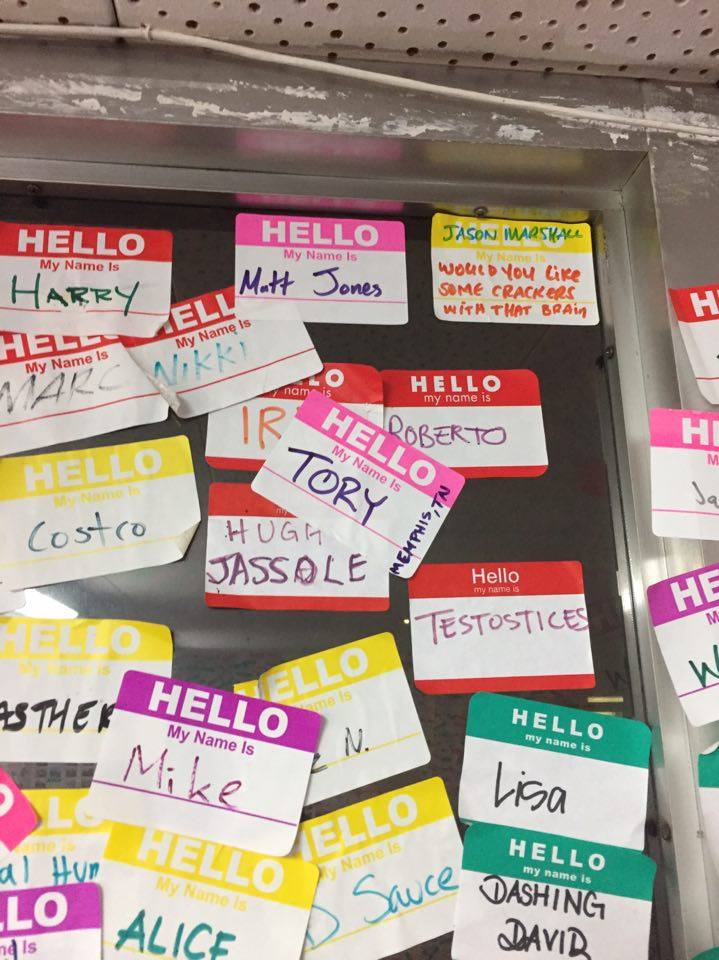 HELLO
My Name Is
HARRY
HELLO
My Name Is
Matt Jones
JASON MARSHALL
My Name Is
WOULD YOU LIKE
SOME CRACKERS
WITH THAT BRAIN
HELL
My Name Is
Nikki
HELLO
My Name Is
MARC
LO
my name is
IR
HELLO
my name is
ROBERTO
HELLO
My Name Is
TORY
MEMPHIS, TN
HELLO
My Name Is
Costco
my
HUGH
JASSOLE
Hello
my name is
TESTOSTICES
HE
My
W
HELLO
My Name Is
ASTHER
HELLO
My Name Is
Mike
ELLO
ame Is
N.
HELLO
my name is
Lisa
LO
ame is
al Hun
HELLO
My Name Is
ALICE
ELLO
y Name Is
D Sauce
HELLO
my name is
DASHING
DAVID
LO
me Is
H
HE
Ja